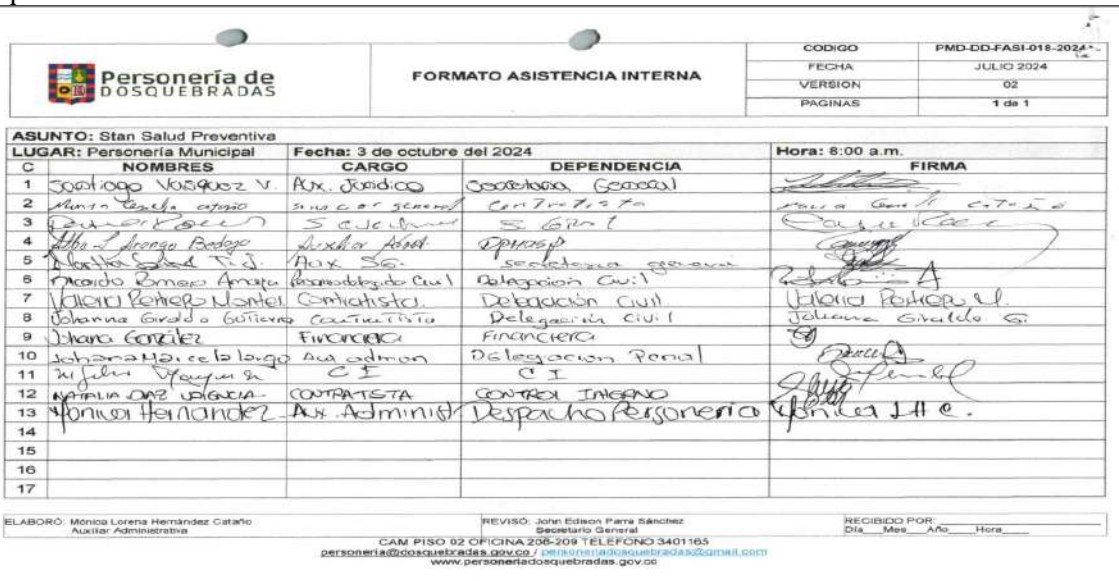 Personería de
DOSQUEBRADAS
FORMATO ASISTENCIA INTERNA
CODIGO PMD-DD-FASI-018-2024
FECHA JULIO 2024
VERSION 02
PAGINAS 1 de 1
ASUNTO: Stan Salud Preventiva
LUGAR: Personería Municipal Fecha: 3 de octubre del 2024 Hora: 8:00 a.m.
C NOMBRES CARGO DEPENDENCIA FIRMA
1 Santiago Vasquez V. Aux. Juridico Secretaria General
2 general Contratista
3
4 Alba L Arango Bedoya Auxiliar
5 Martha Aux SG. secretaria general
6 Ricardo Romero Amaya Personero delegado Civil Delegacion Civil
7 Valeria Montes Contratista. Delegación Civil Valeria
8 Johanna Giraldo Gutierrez Contratista Delegación Civil Johanna Giraldo G.
9 Johana González Financiera Financiera
10 Johana Marcela largo Aux admon Delegacion Penal
11 CI CI
12 NATALIA DIAZ VALENCIA CONTRATISTA CONTROL INTERNO
13 Monica Hernandez Aux. Administ Despacho Personeria Monica LH C.
14
15
16
17
ELABORÓ: Mónica Lorena Hernández Cataño REVISÓ: John Edison Parra Sánchez RECIBIDO POR:
Auxiliar Administrativa Secretario General Día___Mes___Año___Hora____
CAM PISO 02 OFICINA 208-209 TELEFONO 3401165
personeria@dosquebradas.gov.co / personeriadosquebradas@gmail.com
www.personeriadosquebradas.gov.co